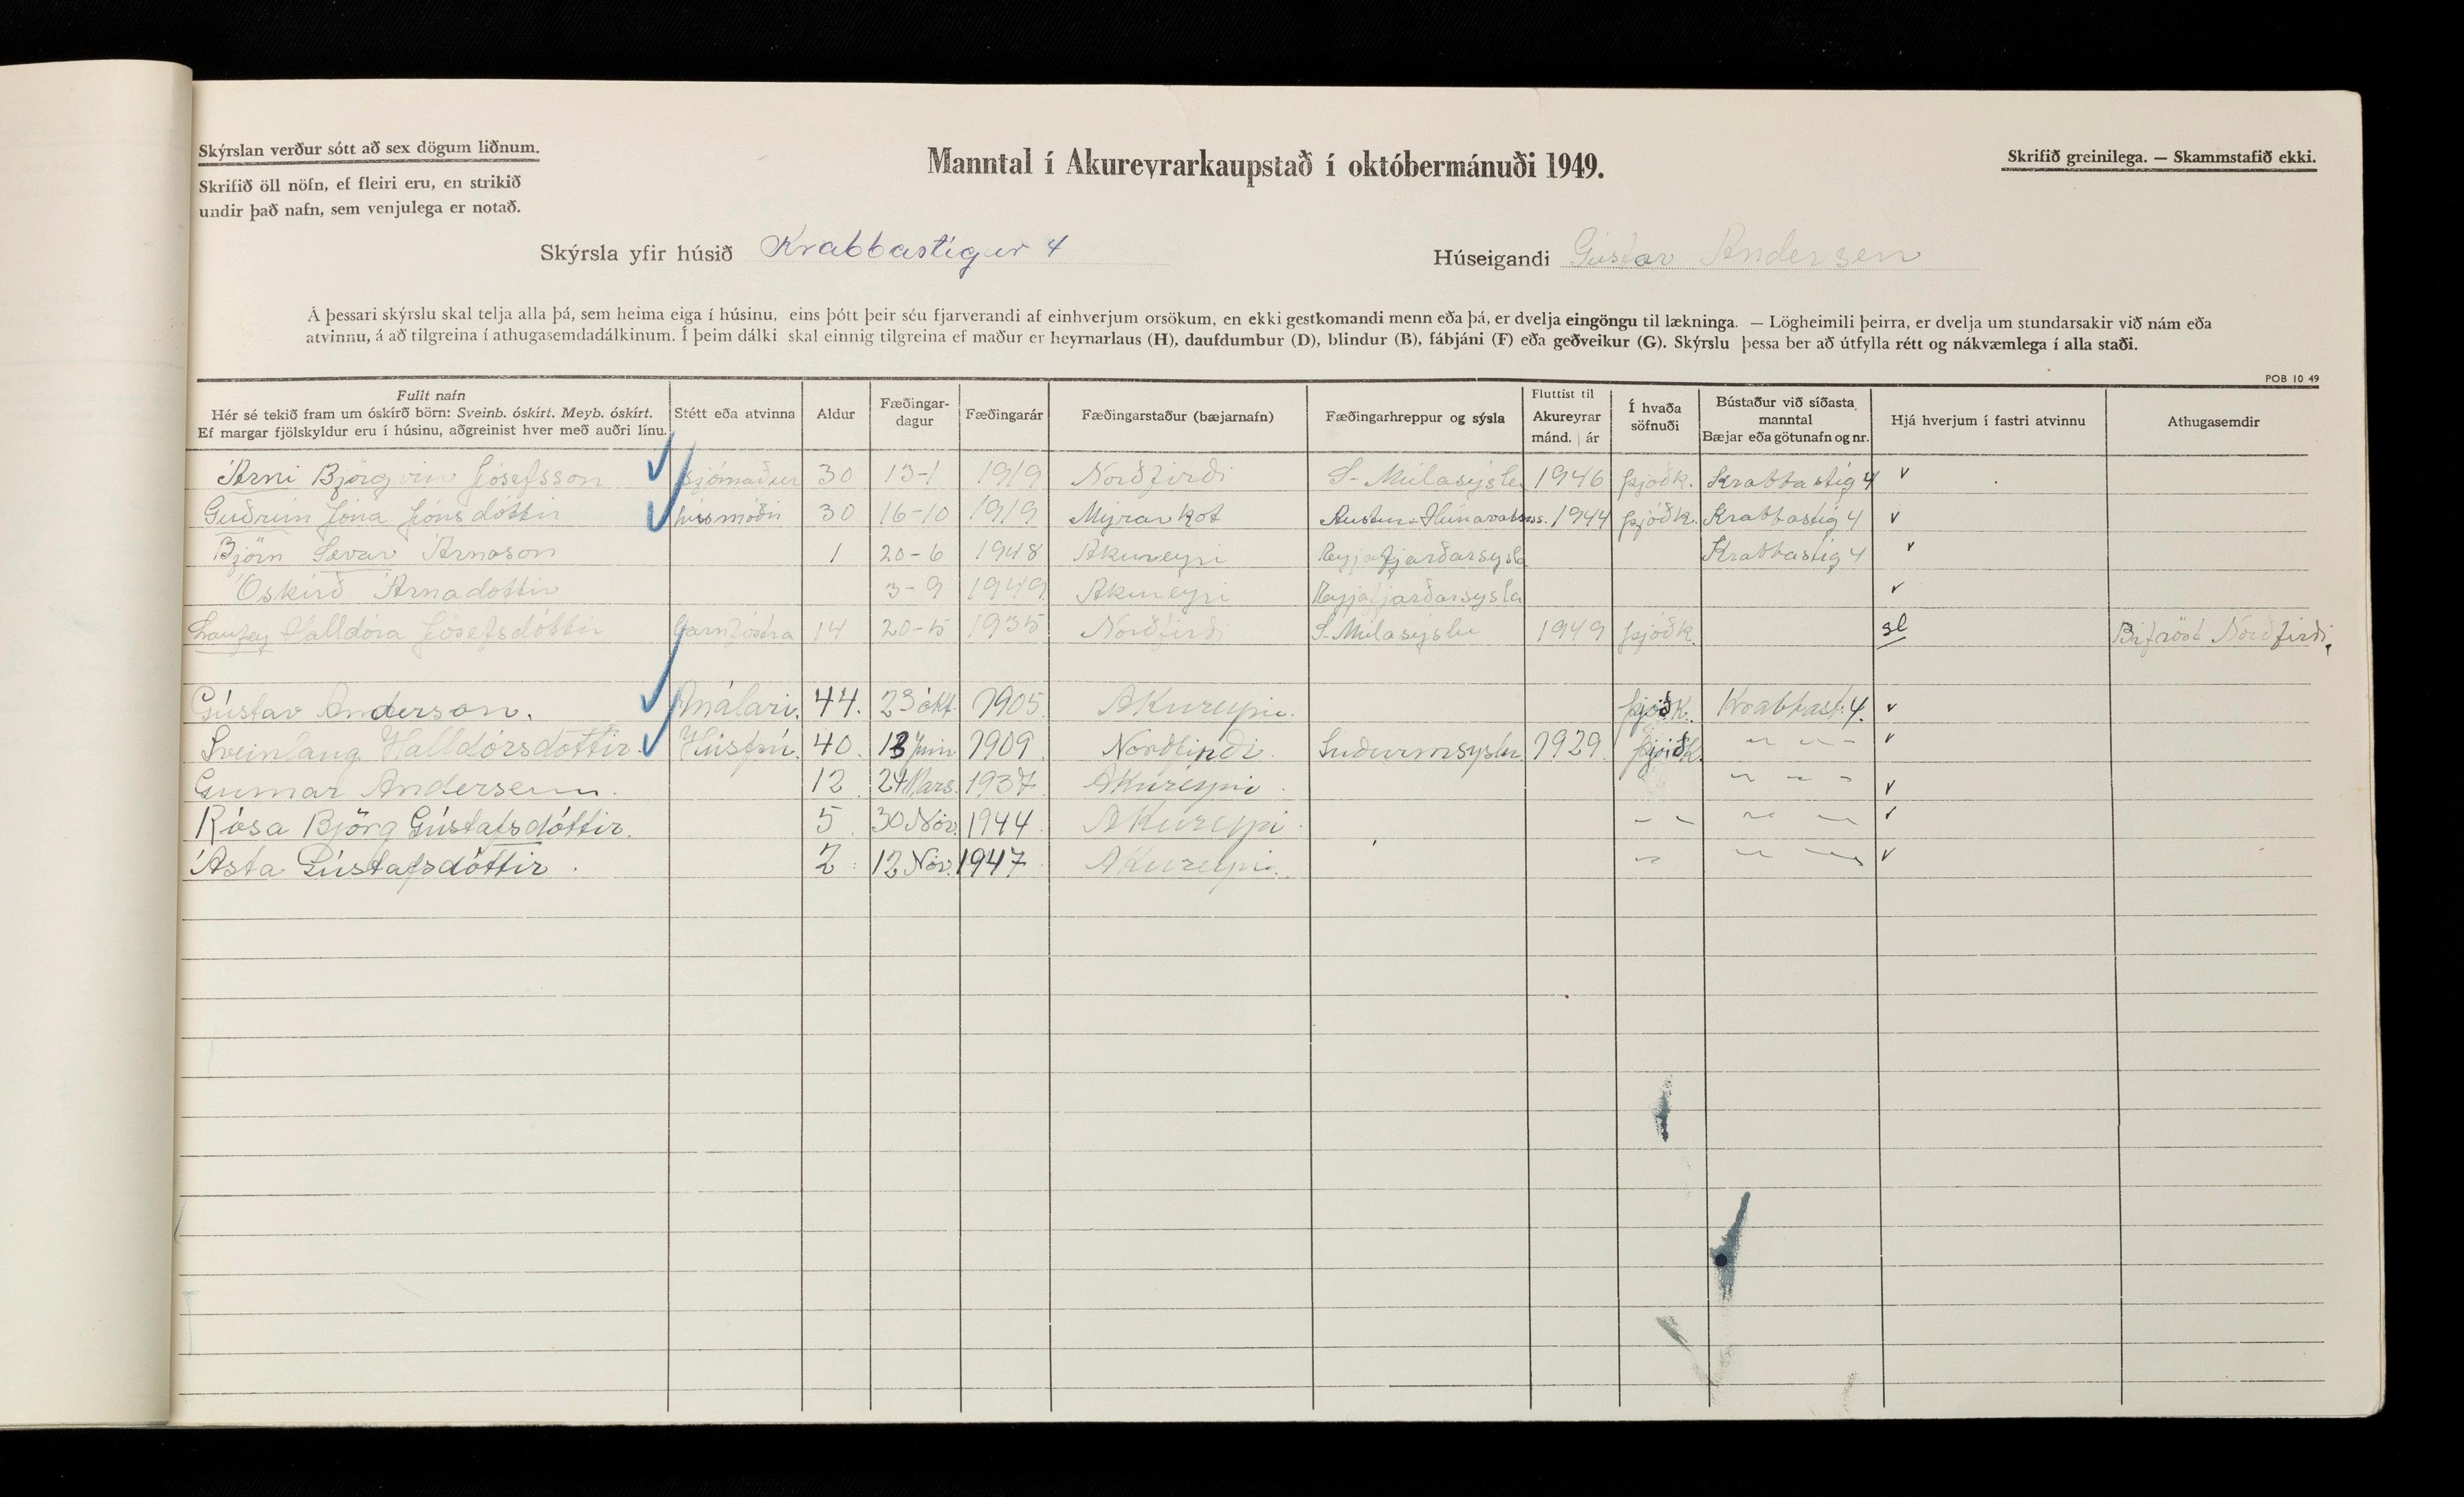 Skýrslan verður sótt að sex dögum liðnum.
Skrifið öll nöfn, ef fleiri eru, en strikið
undir það nafn, sem venjulega er notað.
Manntal í Akureyrarkaupstað í októbermánuði 1949.
Skrifið greinilega. — Skammstafið ekki.
Skýrsla yfir húsið Krabbastígur 4
Húseigandi Gústav Andersen
Á þessari skýrslu skal telja alla þá, sem heima eiga í húsinu, eins þótt þeir séu fjarverandi af einhverjum orsökum, en ekki gestkomandi menn eða þá, er dvelja eingöngu til lækninga. — Lögheimili þeirra, er dvelja um stundarsakir við nám eða
atvinnu, á að tilgreina í athugasemdadálkinum. Í þeim dálki skal einnig tilgreina ef maður er heyrnarlaus (H), daufdumbur (D), blindur (B), fábjáni (F) eða geðveikur (G). Skýrslu þessa ber að útfylla rétt og nákvæmlega í alla staði.
POB 10 49
Fullt nafn
Hér sé tekið fram um óskírð börn: Sveinb. óskírt. Meyb. óskírt.
Ef margar fjölskyldur eru í húsinu, aðgreinist hver með auðri línu.
Stétt eða atvinna
Aldur
Fæðingar-
dagur
Fæðingarár
Fæðingarstaður (bæjarnafn)
Fæðingarhreppur og sýsla
Fluttist til
Akureyrar
mánd. | ár
Í hvaða
söfnuði
Bústaður við síðasta
manntal
Bæjar eða götunafn og nr.
Hjá hverjum í fastri atvinnu
Athugasemdir
Árni Björgvin Jósefsson sjómaður 30 13-1 1919 Norðfirði S-Múlasýsla 1946 þjóðk. Krabbastíg 4
Guðrún Jóna Jónsdóttir húsmóðir 30 16-10 1919 Mýrarkot Austur-Húnavatnss. 1944 þjóðk. Krabbastíg 4
Björn Sævar Árnason 1 20-6 1948 Akureyri Eyjafjarðarsýsla Krabbastíg 4
Óskírð Árnadóttir 3-9 1949 Akureyri Eyjafjarðarsýsla
Laufey Halldóra Jósefsdóttir Barnfóstra 14 20-5 1935 Norðfirði S-Múlasýslu 1949 þjóðk. sl Bifröst Norðfirði
Gústav Anderson. Málari. 44. 23 okt. 1905 Akureyri. þjóðk. Krabbast. 4.
Sveinlaug Halldórsdóttir. Húsfrú. 40. 13 Júní 1909 Norðfirði. Suðurmsýslu 1929. þjóðk. " " "
Gunnar Andersen. 12 24 Mars. 1937 Akureyri. " " "
Rósa Björg Gústafsdóttir. 5 30 Nóv. 1944 Akureyri. " " " "
Ásta Gústafsdóttir. 2 12 Nóv. 1947 Akureyri. " " "